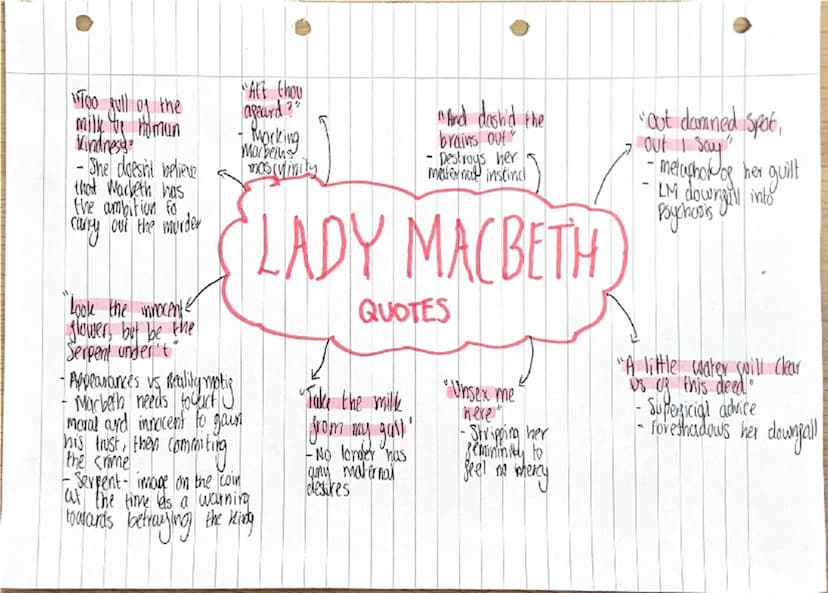 "Too full of the
milk of Human
kindness"
- She doesn't believe
that Macbeth has
the ambition to
carry out the murder
"Art thou
afeard?"
- Mocking
Macbeth's
masculinity
"And dash'd the
brains out"
- Destroys her
maternal instinct
"out damned spot,
out I say"
- metaphor of her guilt
- LM downfall into
psychosis
LADY MACBETH
QUOTES
"Look the innocent
flower, but be the
Serpent under't"
- Appearances vs Reality motif
- Macbeth needs to act
moral and innocent to gain
his trust, then commiting
the crime
- Serpent - image on the coin
at the time as a warning
towards betraying the King
"Take the milk
from my gall"
- No longer has
any maternal
desires
"Unsex me
here"
- Stripping her
femininity to
feel no mercy
"A little water will clear
us of this deed"
- Superficial advice
- Foreshadows her downfall